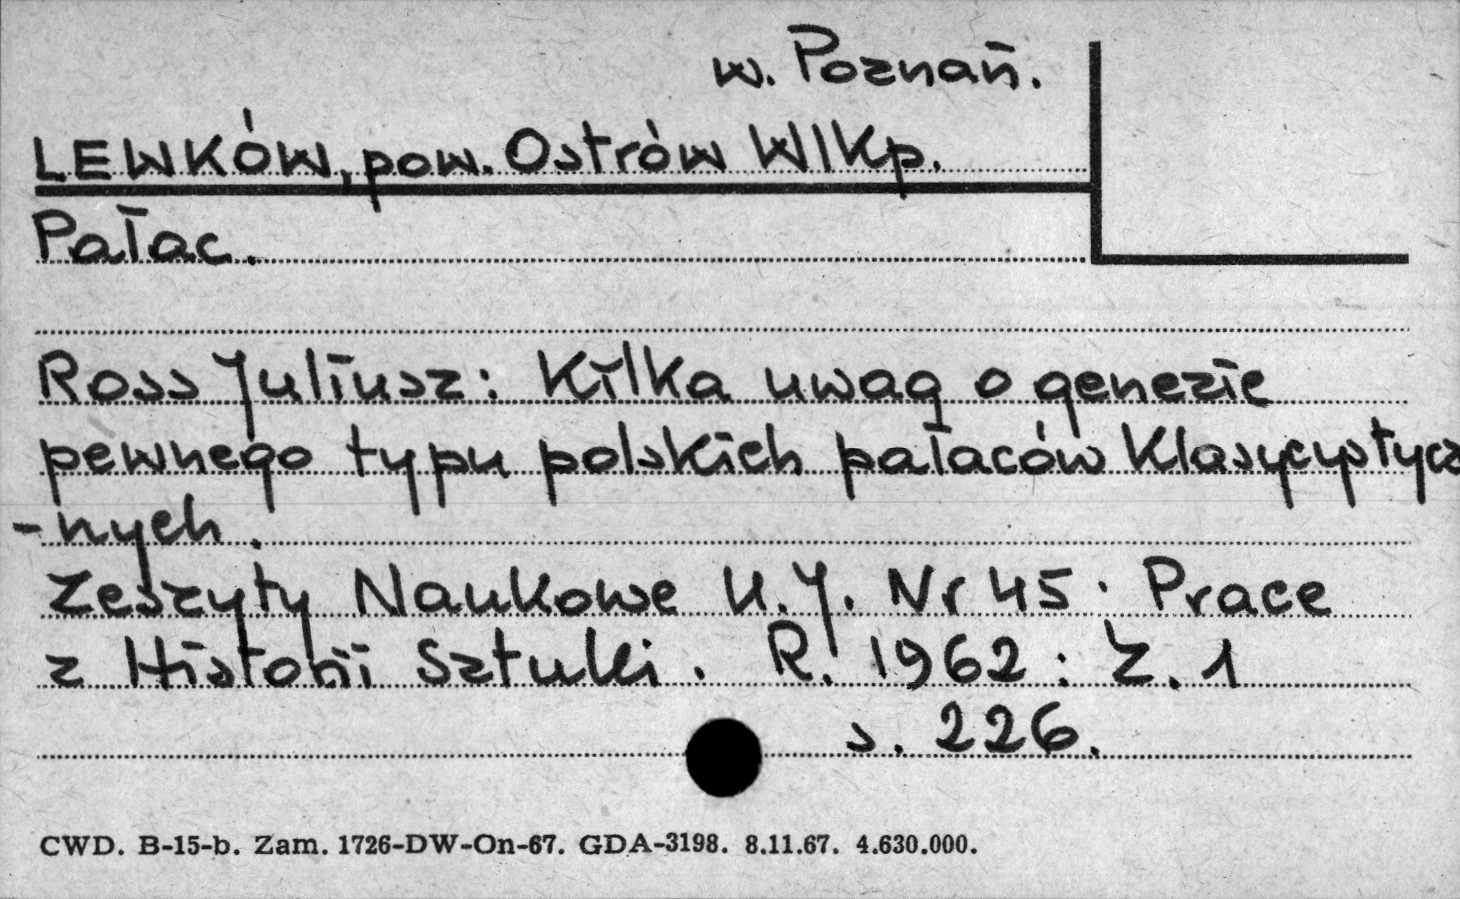 w. Poznań.
LEWKÓW, pow. Ostrów Wlkp.
Pałac.
Ross Juliusz: Kilka uwag o genezie
pewnego typu polskich pałaców klasycystycz
-nych.
Zeszyty Naukowe U.J. Nr 45. Prace
z Historii Sztuki. R. 1962: Z. 1
s. 226.
CWD. B-15-b. Zam. 1726-DW-On-67. GDA-3198. 8.11.67. 4.630.000.